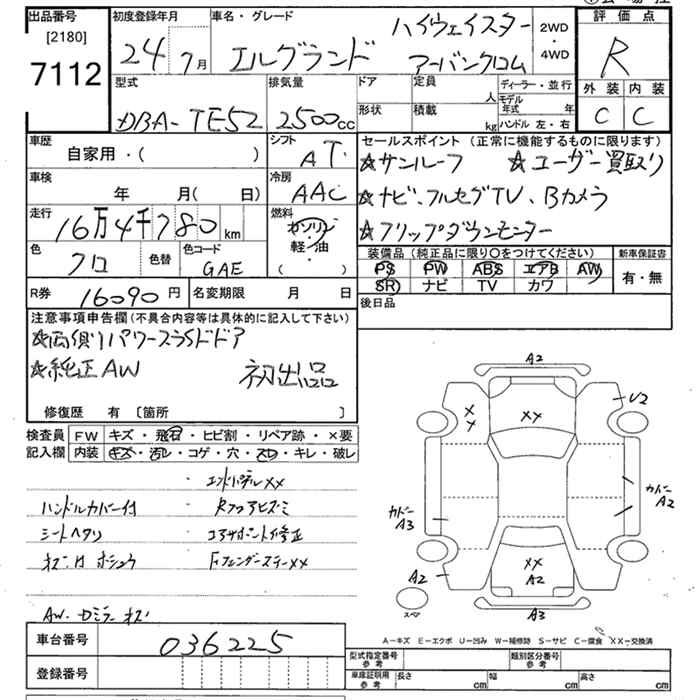 出品番号
[2180]
7112
初度登録年月
24年 7月
車名・グレード
エルグランド
ハイウェイスター
アーバンクロム
2WD
・
4WD
評価点
R
外装 内装
C C
型式
DBA-TE52
排気量
2500cc
ドア
形状
定員
人
積載
kg
ディーラー・並行
モデル年式 年
ハンドル 左・右
車歴
自家用・( )
シフト
AT
車検
年 月( 日)
冷房
AAC
走行
16万4千780km
燃料
ガソリン
軽・油
( )
色
クロ
色替
色コード
GAE
R券
16090円
名変期限 月 日
セールスポイント(正常に機能するものに限ります)
☆サンルーフ ☆ユーザー買取り
☆ナビ、フルセグTV、Bカメラ
☆フリップダウンモニター
装備品(純正品に限り〇をつけてください)
PS PW ABS エアB AW
SR ナビ TV カワ
新車保証書
有・無
後日品
注意事項申告欄(不具合内容等は具体的に記入して下さい)
☆両側パワースライドドア
☆純正AW 初出品
修復歴 有 [箇所 ]
検査員 FW キズ・飛石・ヒビ割・リペア跡・×要
記入欄 内装 キズ・汚レ・コゲ・穴・スレ・キレ・破レ
・エンドパネルXX
ハンドルカバー付 ・Rフロアヒズミ
シートヘタリ ・コアサポート修正
・FフェンダーステーXX
A2
U2
XX
カドーA3
カドーA2
A2
XX
A2
A3
スペア
A-キズ E-エクボ U-凹み W-補修跡 S-サビ C-腐食 XX-交換済
車台番号
036225
登録番号
型式指定番号
参考
類別区分番号
参考
車庫証明用
参考
長さ cm 幅 cm 高さ cm